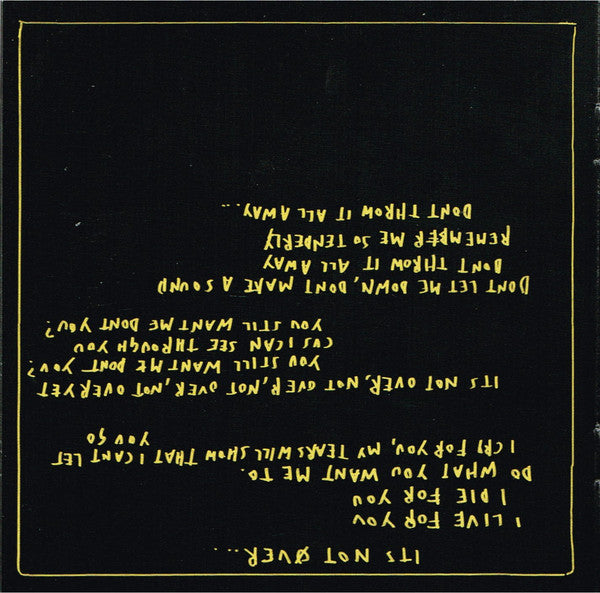 ITS NOT ØVER...
I LIVE FOR YOU
I DIE FOR YOU
DO WHAT YOU WANT ME TO.
I CRY FOR YOU, MY TEARS WILL SHOW THAT I CANT LET
YOU GO
ITS NOT OVER, NOT OVER, NOT OVER, NOT OVER YET
YOU STILL WANT ME DONT YOU?
CUS I CAN SEE THROUGH YOU
YOU STILL WANT ME DONT YOU?
DONT LET ME DOWN, DONT MAKE A SOUND
DONT THROW IT ALL AWAY
REMEMBER ME SO TENDERLY
DONT THROW IT ALL AWAY...